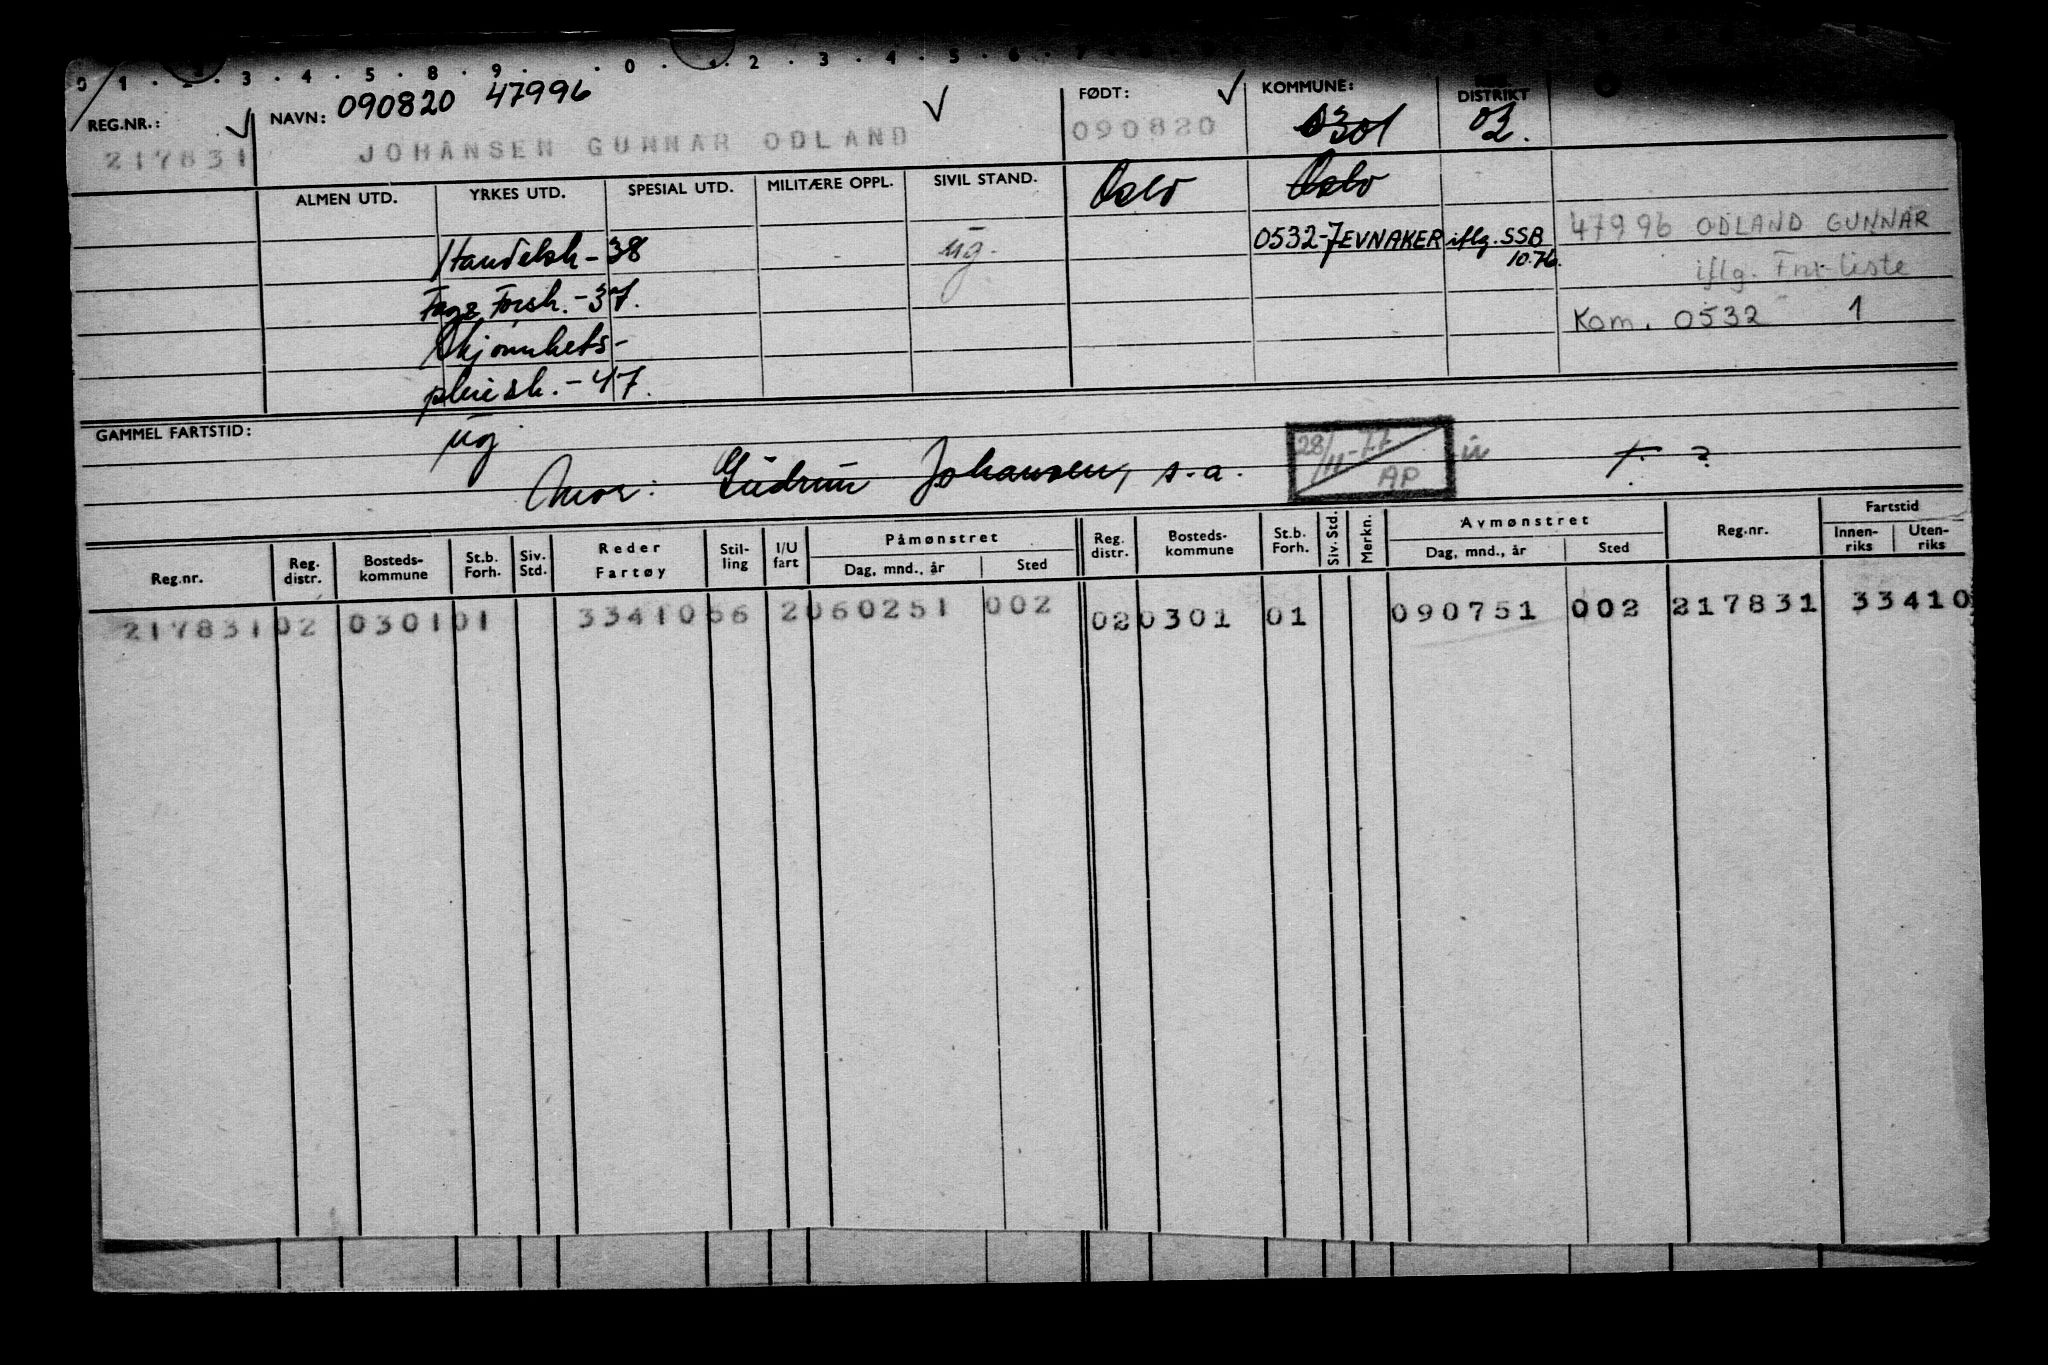 0 1 . 2 . 3 . 4 . 5 . 8 . 9 . . 0 . 1 . 2 . 3 . 4 . 5 . 6 . 7
REG.NR.: NAVN: 090820 47996 FØDT: KOMMUNE: DISTRIKT
217831 JOHANSEN GUNNAR ODLAND 090820 0301 02.
ALMEN UTD. YRKES UTD. SPESIAL UTD. MILITÆRE OPPL. SIVIL STAND. Oslo Oslo
Handelsk - 38 ug. 0532-JEVNAKER iflg. SSB 10.76. 47996 ODLAND GUNNAR
iflg. Fnr-liste
Fagz Forsk. - 37.
Kom. 0532 1
Skjønnhets-
pleiesk. - 47.
GAMMEL FARTSTID: ug
Mor: Gudrun Johansen, s.a. 28/11-77 AP ?
Reg.nr. Reg. distr. Bosteds-kommune St.b. Forh. Siv. Std. Reder Fartøy Stil-ling I/U fart Påmønstret Dag, mnd., år Sted Reg. distr. Bosteds-kommune St.b. Forh. Siv. Std. Merkn. Avmønstret Dag, mnd., år Sted Reg.nr. Fartstid Innen-riks Uten-riks
217831 02 0301 01 33410 56 2 060251 002 02 0301 01 090751 002 217831 33410